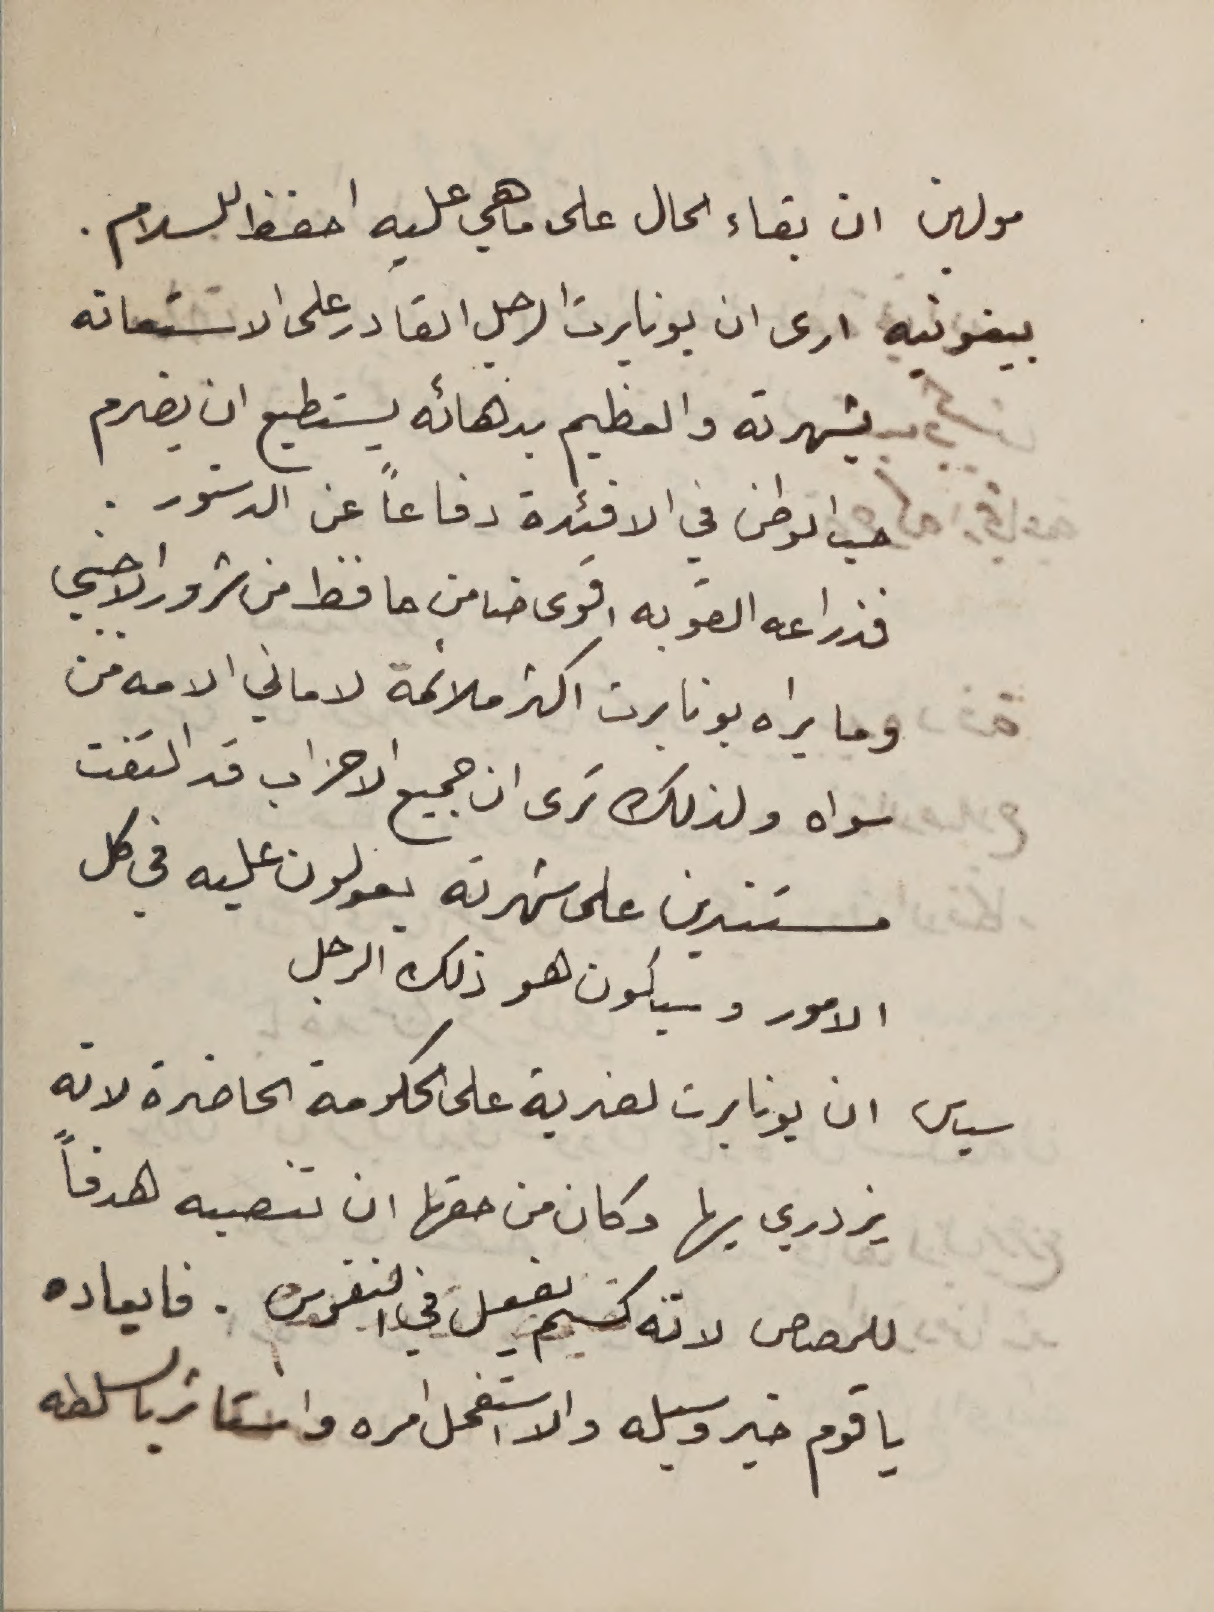 مولين ان بقاء الحال على ماهي عليه احفظ للسلام .
بيغونيه ارى ان بونابرت الرجل القادر على الاستعانه
بشهرته والعظيم بدهائه يستطيع ان يضرم
حب الوطن في الافئدة دفاعاً عن الدستور .
فذراعه القويه اقوى ضامن حافظ من شرور الاجنبي
وما يراه بونابرت اكثر ملائمة لاماني الامه من
سواه ولذلك ترى ان جميع الاحزاب قد التفت
مستندين على شهرته يعولون عليه في كل
الامور وسيكون هو ذلك الرجل
سياس ان بونابرت لضربة على الحكومة الحاضرة لانه
يزدري بها وكان من حقها ان تنصبه هدفاً
للرصاص لانه كسم يفعل في النفوس . فابعاده
يا قوم خير وسيله والا استفحل امره واستاثر بالسلطه